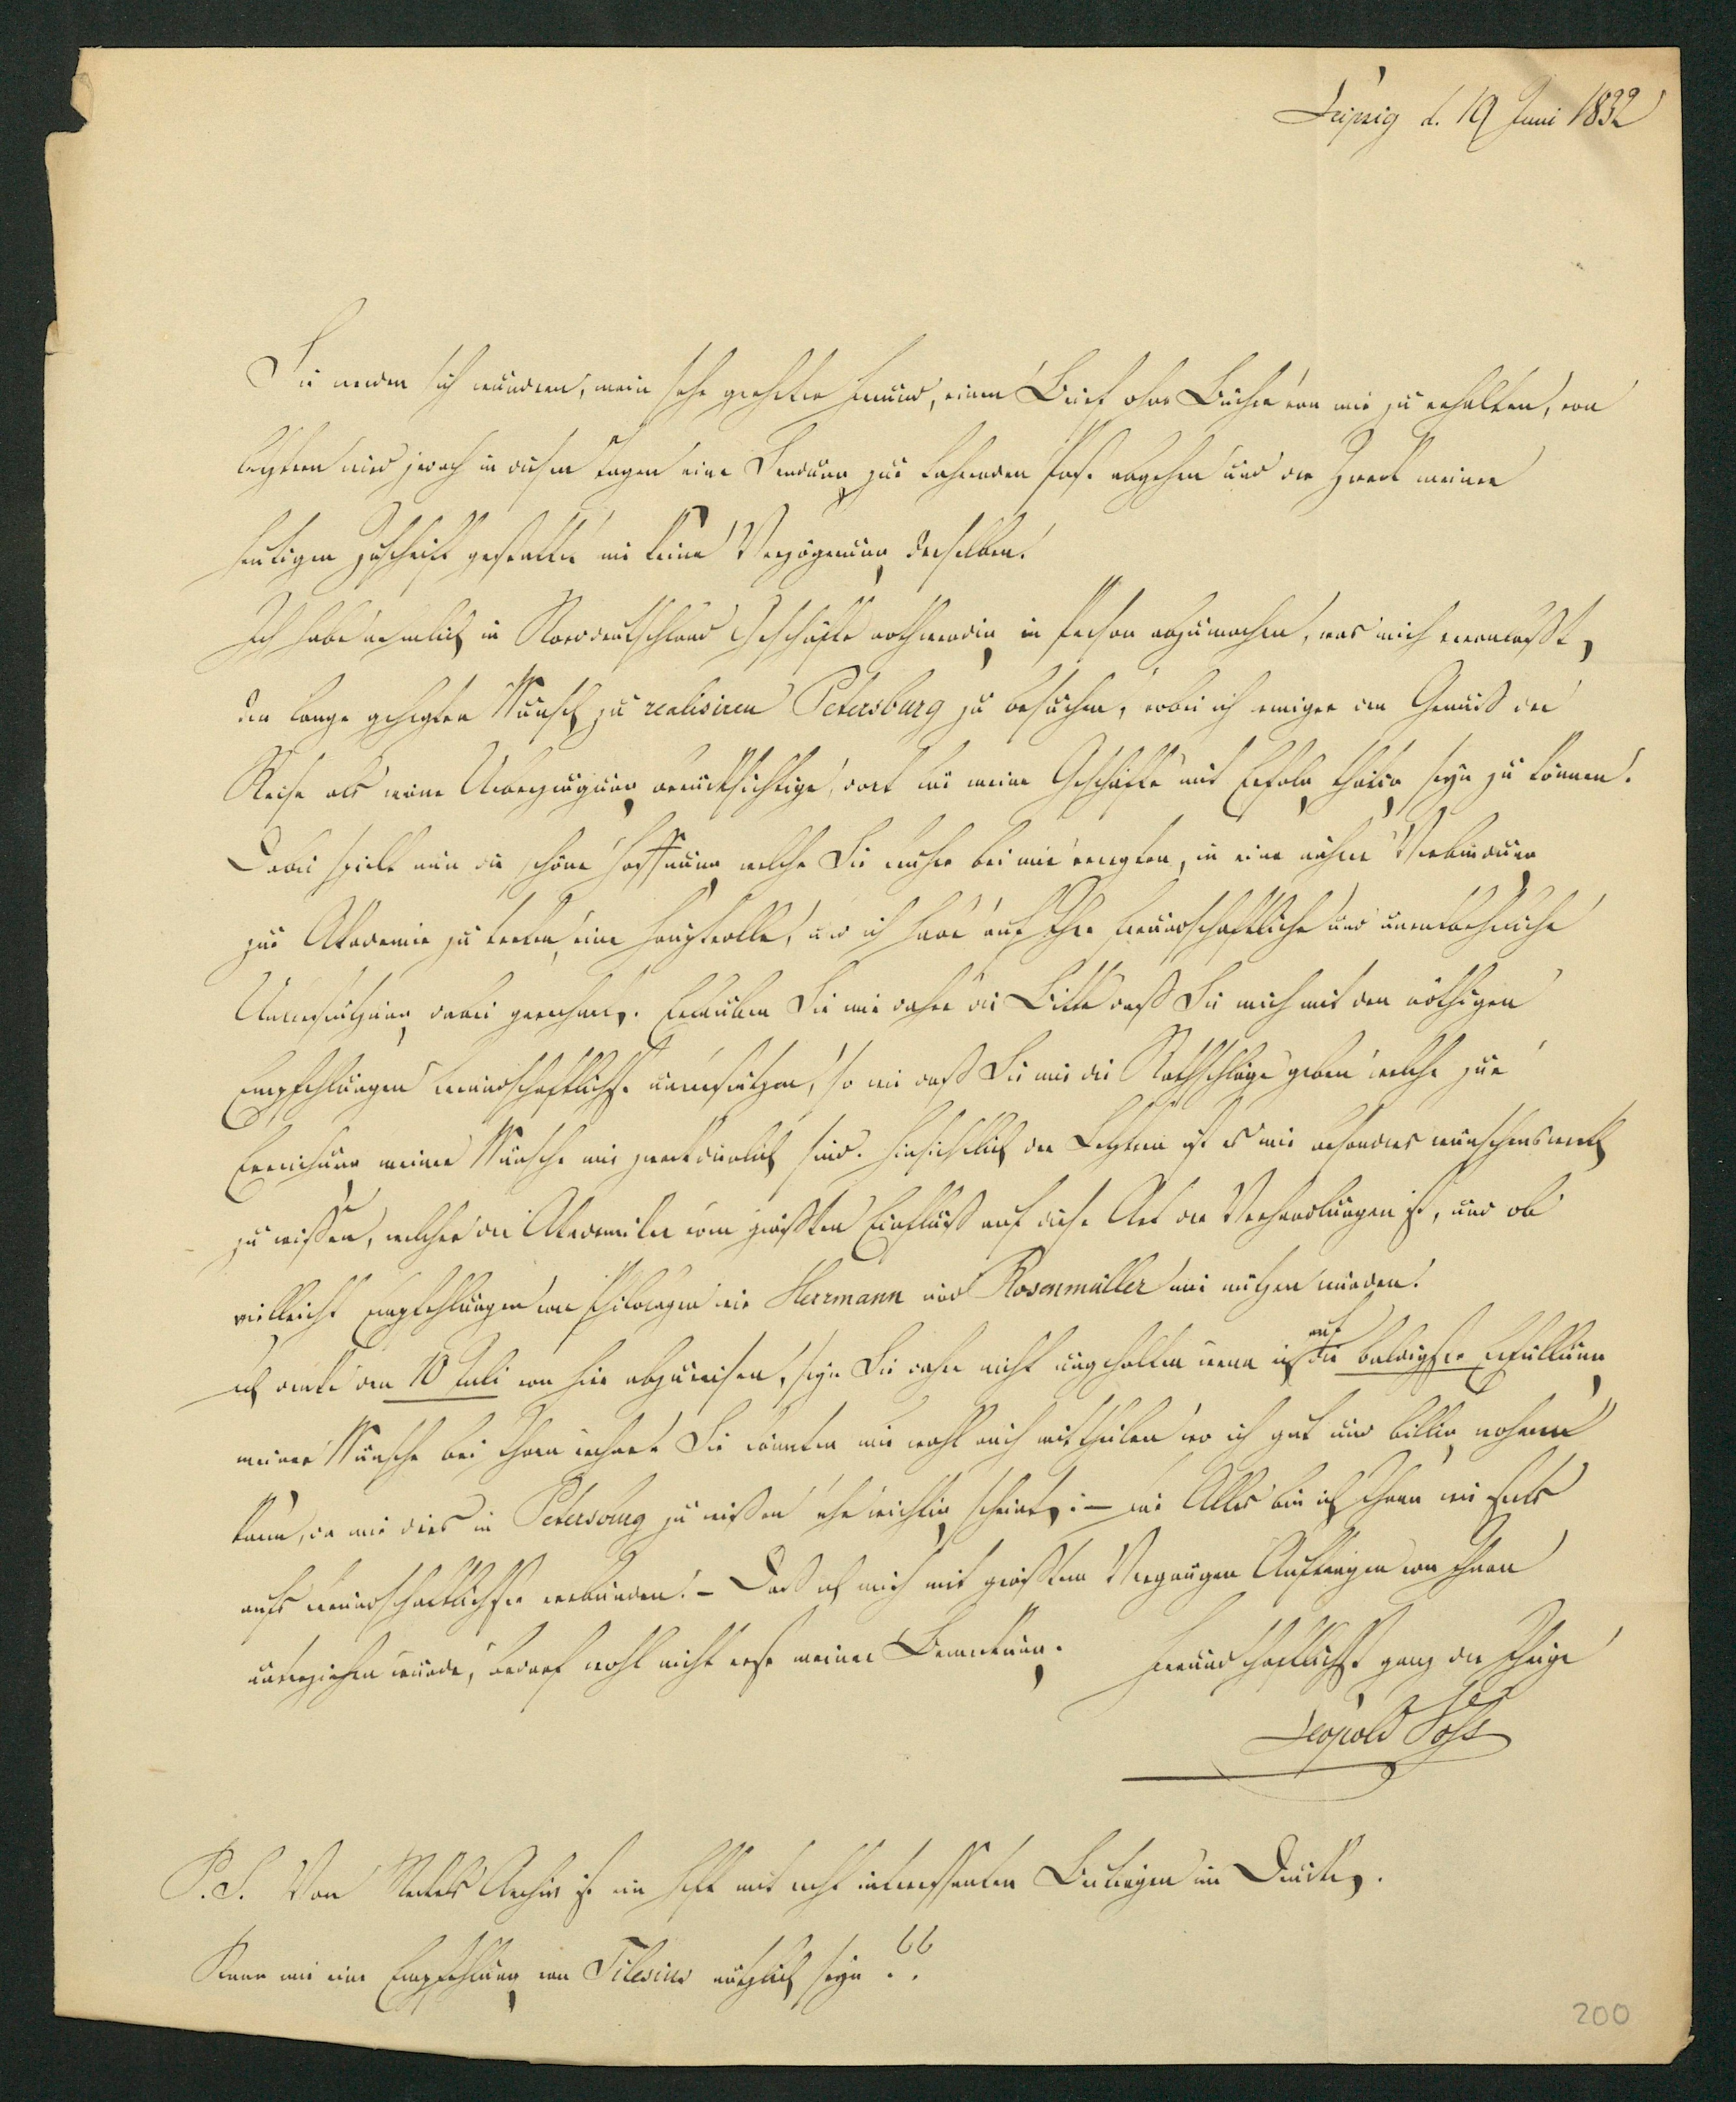 Leipzig d. 19 Juni 1832
Sie werden sich wundern, mein sehr geehrter Freund, einen Brief ohne Bücher von mir zu erhalten, von
letztern wird jedoch in diesen Tagen eine Sendung zur fahrenden Post abgehen und der Zweck meiner
heutigen Zuschrift gestattete mir keine Verzögerung derselben.
Ich habe nehmlich in Norddeutschland Geschäfte nothwendig in Person abzumachen, was mich veranlaßt,
den lange gehegten Wunsch zu realisiren Petersburg zu besuchen, wobei ich weniger den Genuß der
Reise als meine Ueberzeugung berücksichtige, dort für meine Geschäfte mit Erfolg thätig seyn zu können.
Dabei spielt nun die schöne Hoffnung welche Sie früher bei mir erregten, in eine nähere Verbindung
zur Akademie zu treten, eine Hauptrolle, und ich habe auf Ihre freundschaftliche und unentbehrliche
Unterstützung dabei gerechnet. Erlauben Sie mir daher die Bitte daß Sie mich mit den nöthigen
Empfehlungen freundschaftlichst unterstützen, so wie daß Sie mir die Rathschläge geben welche zur
Erreichung meiner Wünsche mir zweckdienlich sind. Hinsichtlich der Letztern ist es mir besonders wünschenswerth
zu wissen, welcher der Akademiker vom größten Einfluß auf diese Art der Verhandlungen ist, und ob
vielleicht Empfehlungen von Philologen wie Herrmann und Rosenmüller mir nützen würden.
Ich denke den 10 Juli von hier abzureisen, seyn Sie daher nicht ungehalten wenn ich auf die baldigste Erfüllung
meiner Wünsche bei Ihnen rechne. Sie könnten mir wohl auch mittheilen wo ich gut und billig wohnen
kann, da mir dies in Petersburg zu wissen sehr wichtig scheint; — für Alles bin ich Ihnen wie stets
aufs freundschaftlichste verbunden. — Daß ich mich mit größtem Vergnügen Aufträgen von Ihnen
unterziehen würde, bedarf wohl nicht erst meiner Bemerkung. Freundschaftlichst ganz der Ihrige
Leopold Voss
P. S. Von Meckels Archiv ist ein Heft mit recht interessanten Beiträgen im Drucke.
Kann mir eine Empfehlung von Tilesius nützlich seyn??
200